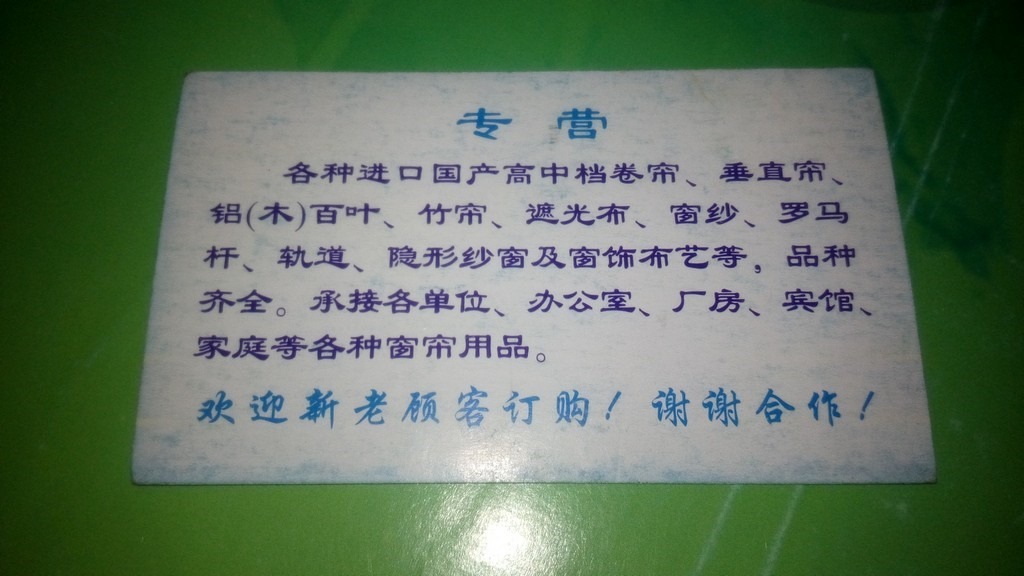 专 营
各种进口国产高中档卷帘、垂直帘、
铝(木)百叶、竹帘、遮光布、窗纱、罗马
杆、轨道、隐形纱窗及窗饰布艺等，品种
齐全。承接各单位、办公室、厂房、宾馆、
家庭等各种窗帘用品。
欢迎新老顾客订购！谢谢合作！